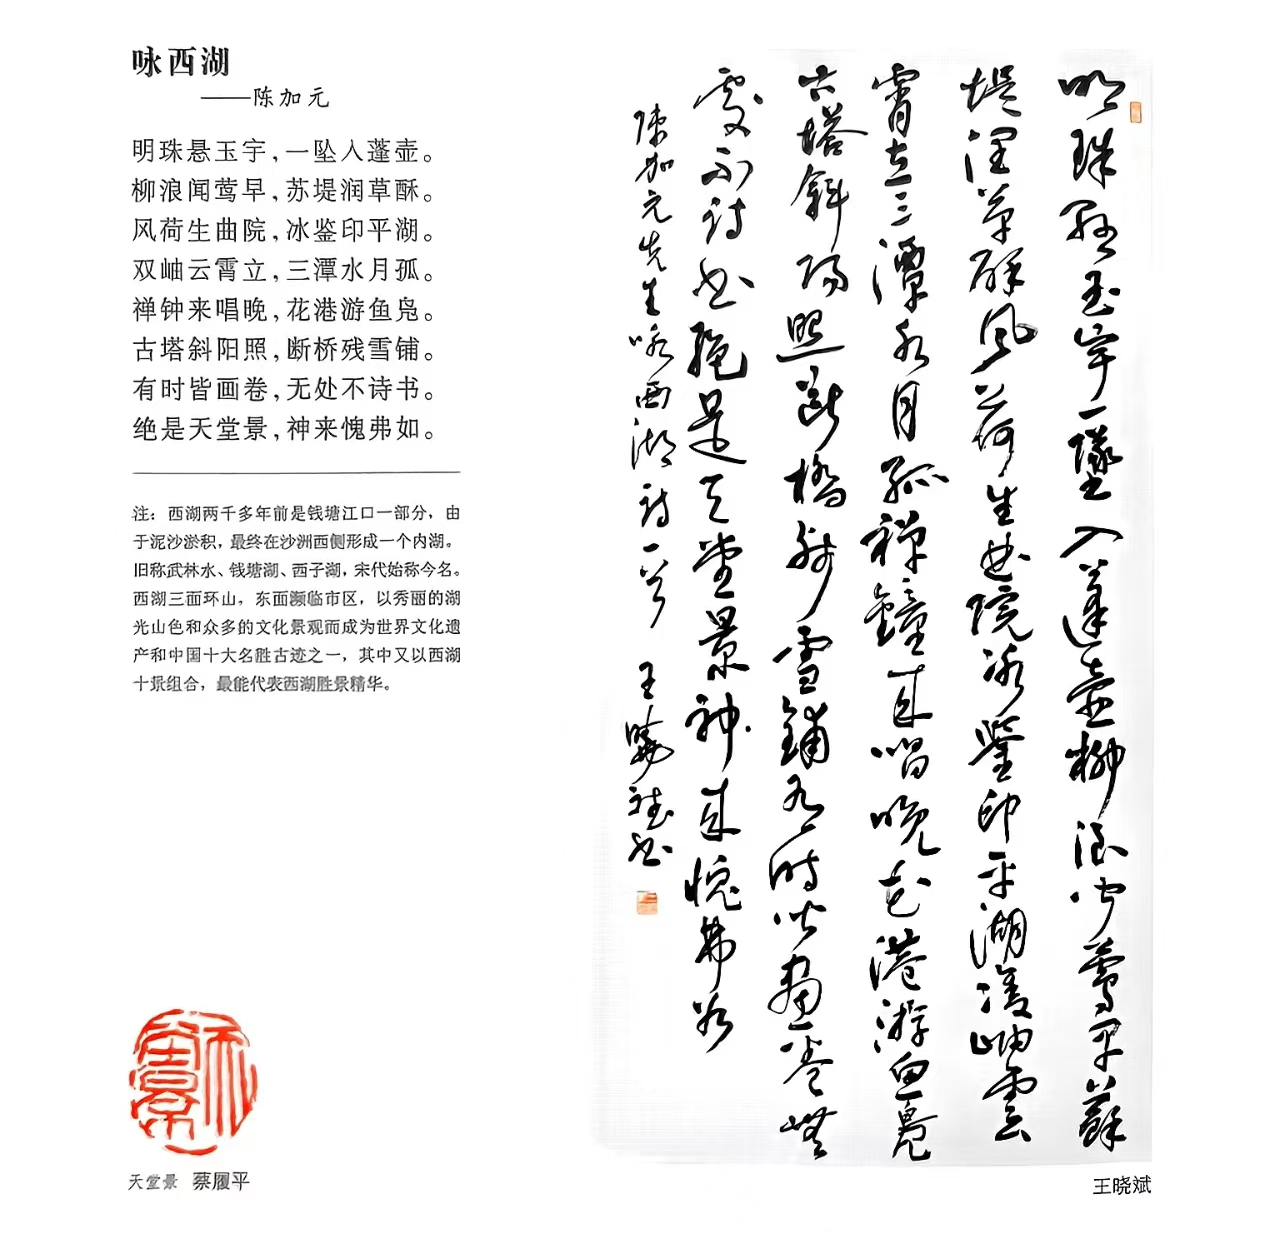 咏西湖
——陈加元
明珠悬玉宇,一坠入蓬壶。
柳浪闻莺早,苏堤润草酥。
风荷生曲院,冰鉴印平湖。
双岫云霄立,三潭水月孤。
禅钟来唱晚,花港游鱼凫。
古塔斜阳照,断桥残雪铺。
有时皆画卷,无处不诗书。
绝是天堂景,神来愧弗如。
注：西湖两千多年前是钱塘江口一部分，由
于泥沙淤积，最终在沙洲西侧形成一个内湖。
旧称武林水、钱塘湖、西子湖，宋代始称今名。
西湖三面环山，东面濒临市区，以秀丽的湖
光山色和众多的文化景观而成为世界文化遗
产和中国十大名胜古迹之一，其中又以西湖
十景组合，最能代表西湖胜景精华。
明珠懸玉宇一墜入蓬壺柳浪聞鶯早蘇
堤潤草酥風荷生曲院冰鑒印平湖雙岫雲
霄立三潭水月孤禪鐘來唱晚花港游魚鳧
古塔斜陽照斷橋殘雪鋪有時皆畫卷無
處不詩書絕是天堂景神來愧弗如
陳加元先生咏西湖詩一首 王曉斌書
天堂景
天堂景 蔡履平
王晓斌